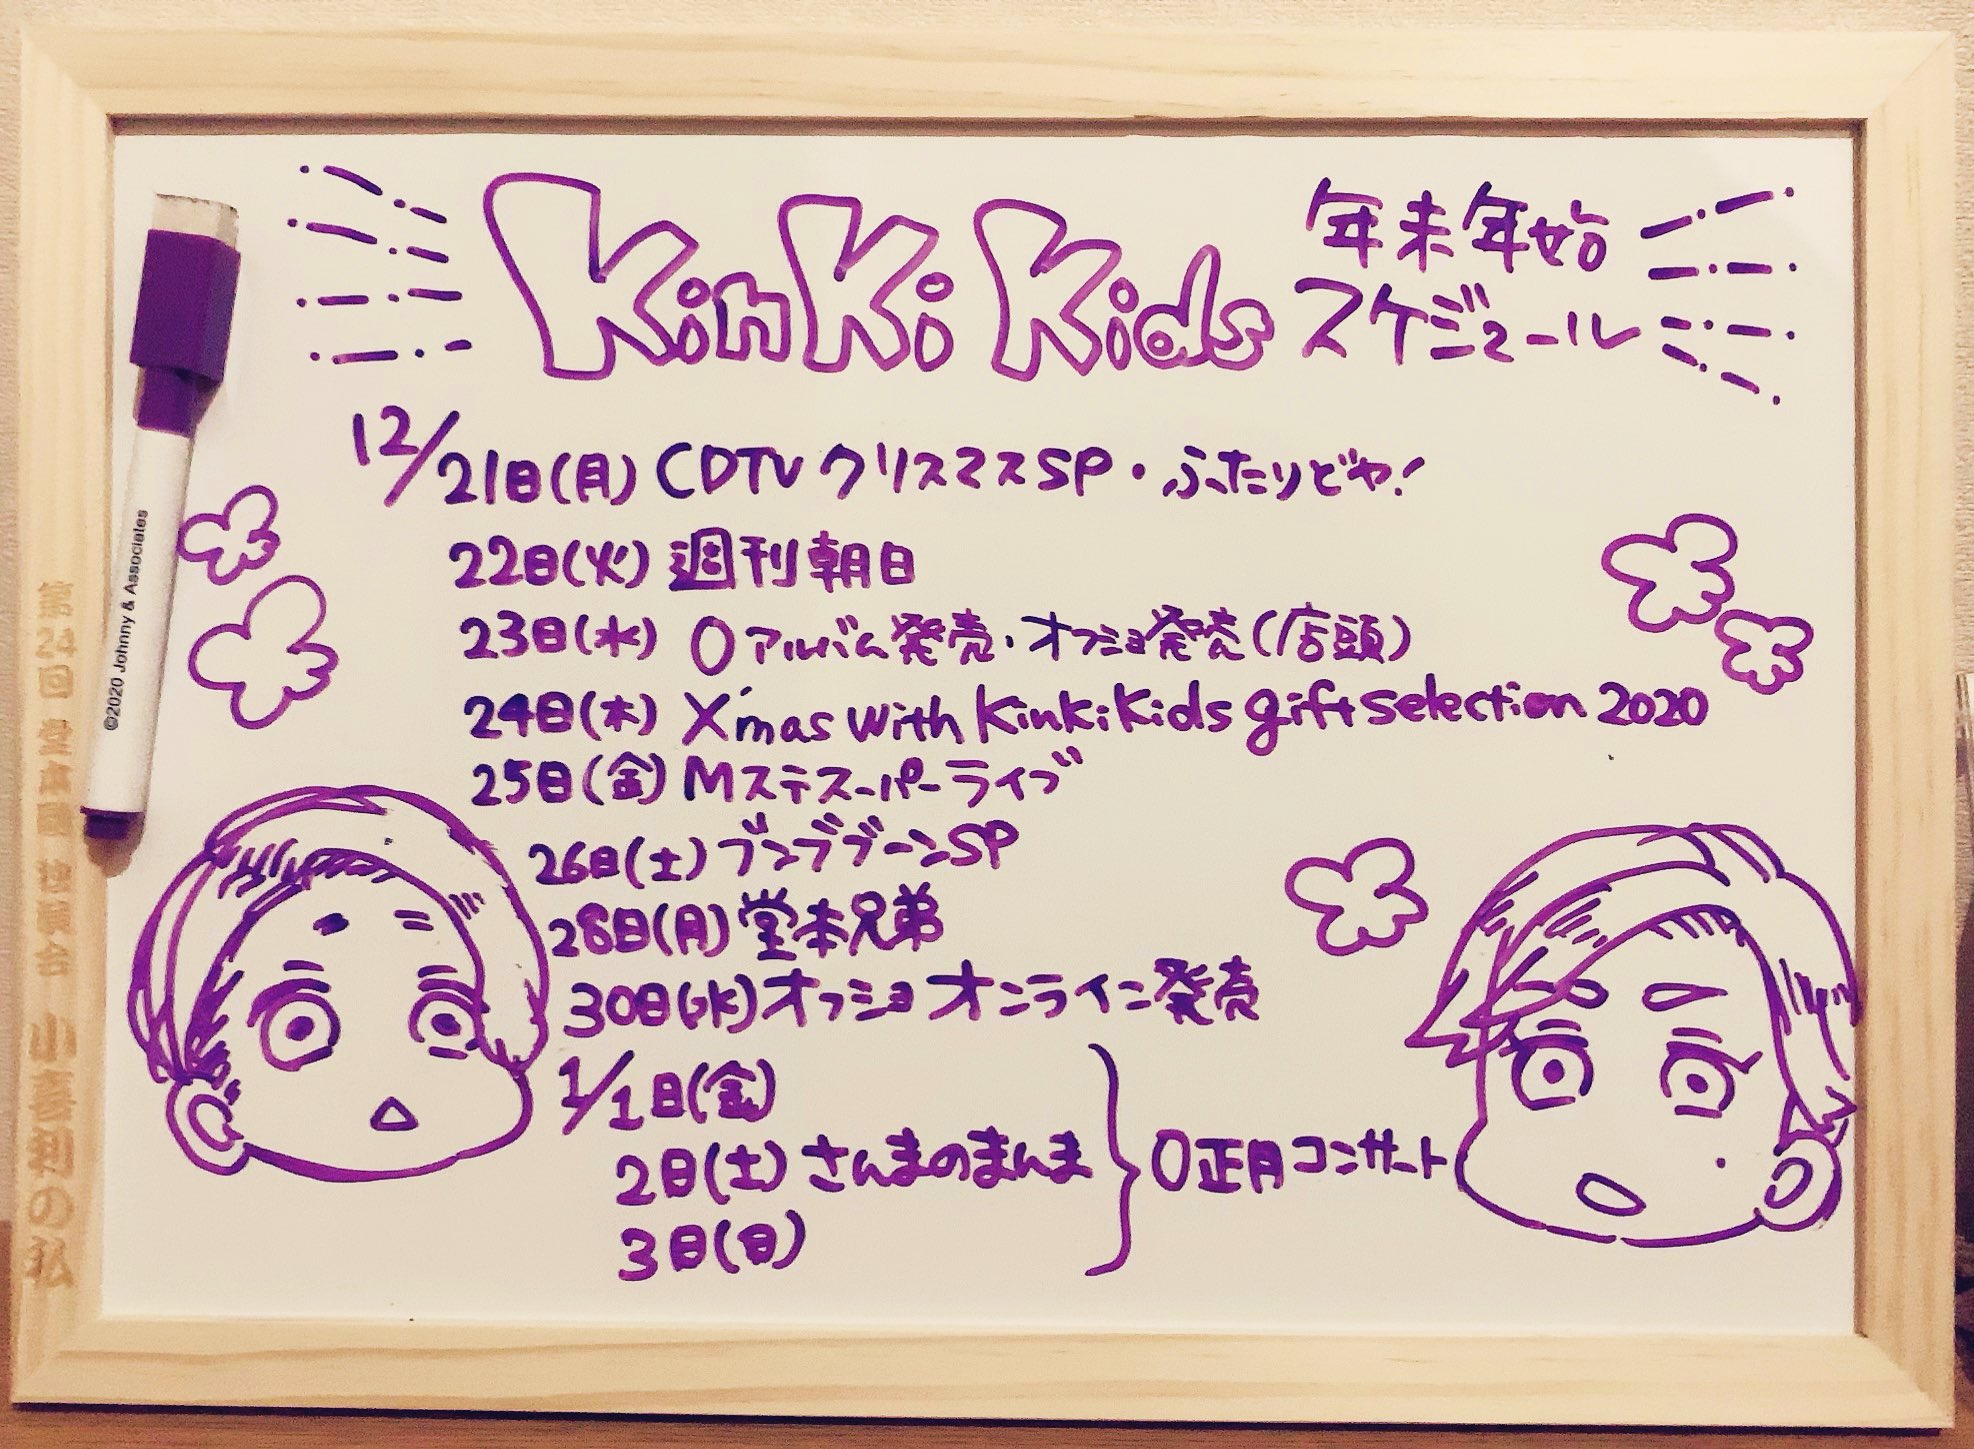 KinKi Kids 年末年始
スケジュール
12/21日(月) CDTVクリスマスSP・ふたりどヤ!
22日(火) 週刊朝日
23日(水) Oアルバム発売・オフショ発売(店頭)
24日(木) X'mas with KinKi Kids gift selection 2020
25日(金) Mステスーパーライブ
26日(土) ブンブブーンSP
28日(月) 堂本兄弟
30日(水) オフショオンライン発売
1/1日(金)
2日(土) さんまのまんま
3日(日)
} O正月コンサート
©2020 Johnny & Associates
第24回